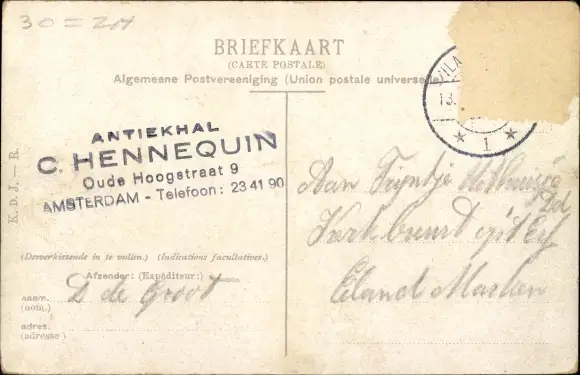 30=ZA
BRIEFKAART
(CARTE POSTALE)
Algemeene Postvereeniging (Union postale universe
VILA
13.
* 1 *
ANTIEKHAL
C. HENNEQUIN
Oude Hoogstraat 9
AMSTERDAM - Telefoon: 23 41 90
K. D. J. — R.
(Desverkiezende in te vullen.) (Indications facultatives.)
Afzender: (Expéditeur:)
D de Groot
naam.
(nom.)
adres.
(adresse)
Aan Trijntje
Kerkbuurt op't
Eiland Marken